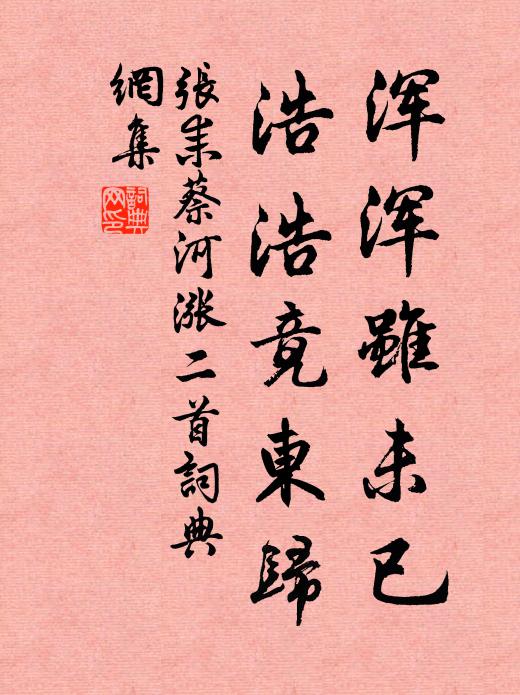 浑浑雖未已
浩浩竟東歸
張耒蔡河漲二首詞典
網集
詞典網印